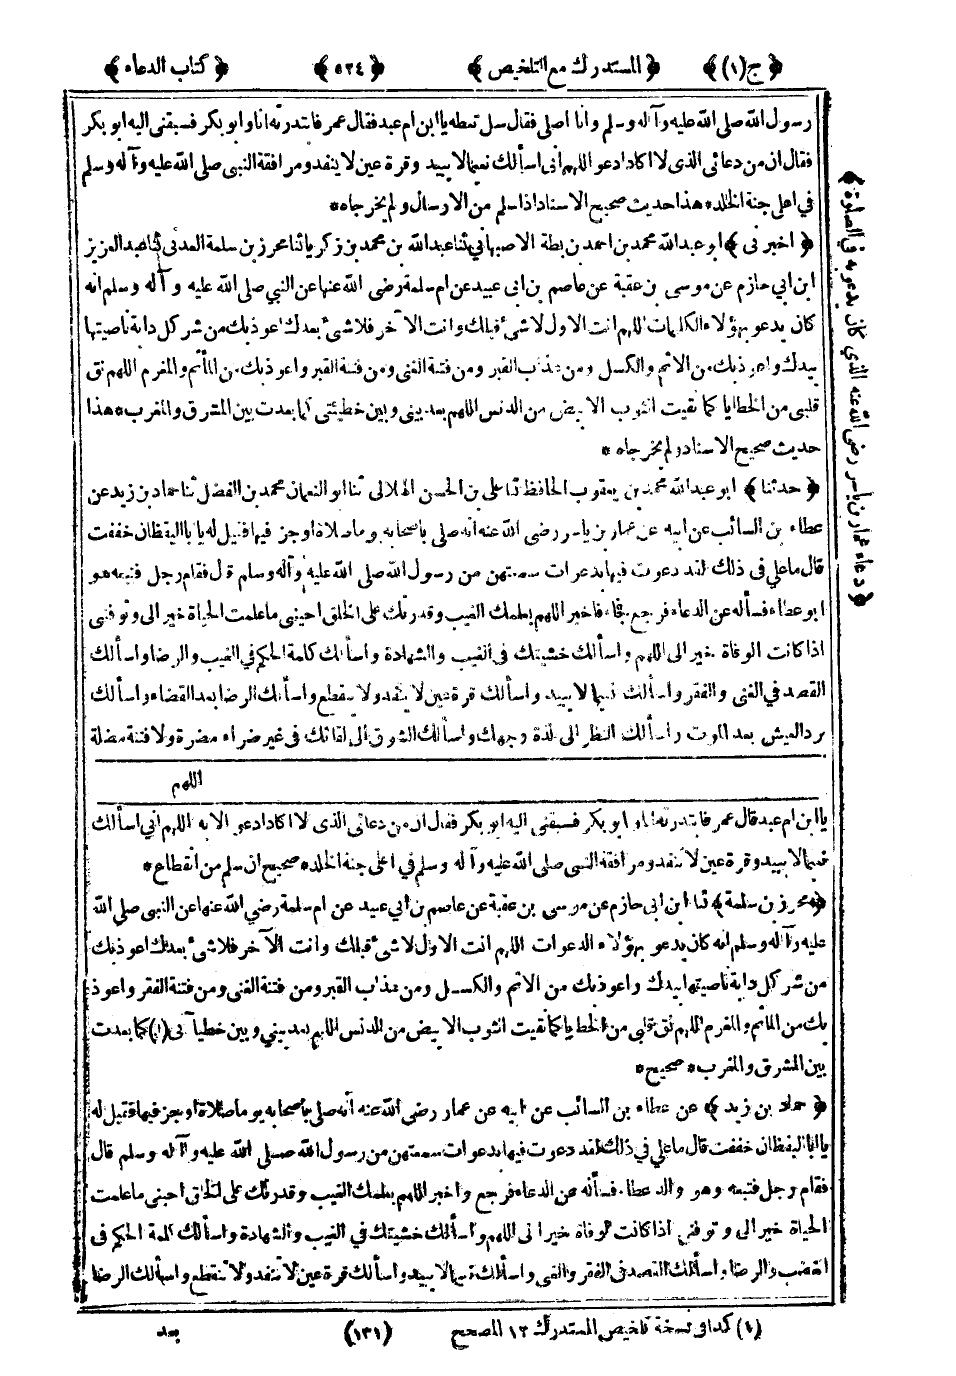 ﴿ ج (١) ﴾ ﴿ المستدرك مع التلخيص ﴾ ﴿ ٥٢٤ ﴾ ﴿ كتاب الدعاء ﴾
رسول الله صلى الله عليه وآله وسلم وانا اصلى فقال سل تعطه يا ابن ام عبد فقال عمر فابتدرته انا وابو بكر فسبقنى اليه ابو بكر
فقال ان من دعائى الذى لا اكاد ادعو اللهم انى اسألك نعيما لا يبيد وقرة عين لا ينفد ومرافقة النبى صلى الله عليه وآله وسلم
فى اعلى جنة الخلد * هذا حديث صحيح الاسناد اذا سلم من الارسال ولم يخرجاه *
﴿ اخبرنى ﴾ ابو عبد الله محمد بن احمد بن بطة الاصبهانى ثنا عبد الله بن محمد بن زكريا ثنا محرز بن سلمة المدنى ثنا عبد العزيز
ابن ابى حازم عن موسى بن عقبة عن عاصم بن ابى عبيد عن ام سلمة رضى الله عنها عن النبي صلى الله عليه وآله وسلم انه
كان يدعو بهؤلاء الكلمات اللهم انت الاول لا شئ قبلك وانت الآخر فلا شئ بعدك اعوذ بك من شر كل دابة ناصيتها
بيدك واعوذ بك من الاثم والكسل ومن عذاب القبر ومن فتنة الغنى ومن فتنة القبر واعوذ بك من المأثم والمغرم اللهم نق
قلبى من الخطايا كما نقيت الثوب الابيض من الدنس اللهم بعد بينى وبين خطيئتى كما بعدت بين المشرق والمغرب * هذا
حديث صحيح الاسناد ولم يخرجاه *
﴿ حدثنا ﴾ ابو عبد الله محمد بن يعقوب الحافظ ثنا على بن الحسن الهلالى ثنا ابو النعمان محمد بن الفضل ثنا حماد بن زيد عن
عطاء بن السائب عن ابيه عن عمار بن ياسر رضى الله عنه انه صلى باصحابه يوما صلاة اوجز فيها فقيل له يا ابا اليقظان خففت
قال ما على فى ذلك لقد دعوت فيها بدعوات سمعتهن من رسول الله صلى الله عليه وآله وسلم قال فقام رجل فتبعه هو
ابو عطاء فسأله عن الدعاء فرجع فجاء فاخبر اللهم بعلمك الغيب وقدرتك على الخلق احينى ما علمت الحياة خير الى وتوفنى
اذا كانت الوفاة خير الى اللهم واسألك خشيتك فى الغيب والشهادة واسألك كلمة الحكم فى الغيب والرضا واسألك
القصد فى الغنى والفقر واسألك نعيما لا يبيد واسألك قرة عين لا ينفد ولا ينقطع واسألك الرضا بعد القضاء واسألك
برد العيش بعد الموت واسألك النظر الى لذة وجهك واسألك الشوق الى لقائك فى غير ضراء مضرة ولا فتنة مضلة
اللهم
﴿ دعاء عمار بن ياسر رضى الله عنه الذي كان يدعو به في الصلوة ﴾
يا ابن ام عبد قال عمر فابتدرته انا وابو بكر فسبقنى اليه ابو بكر فقال ان من دعائى الذى لا اكاد ادعو الا به اللهم انى اسألك
نعيما لا يبيد وقرة عين لا تنفد ومرافقة النبى صلى الله عليه وآله وسلم فى اعلى جنة الخلد * صحيح ان سلم من انقطاع *
﴿ محرز بن سلمة ﴾ ثنا ابن ابى حازم عن موسى بن عقبة عن عاصم بن ابى عبيد عن ام سلمة رضي الله عنها عن النبى صلى الله
عليه وآله وسلم انه كان يدعو بهؤلاء الدعوات اللهم انت الاول لا شئ قبلك وانت الآخر فلا شئ بعدك اعوذ بك
من شر كل دابة ناصيتها بيدك واعوذ بك من الاثم والكسل ومن عذاب القبر ومن فتنة الغنى ومن فتنة الفقر واعوذ
بك من المأثم والمغرم اللهم نق قلبى من الخطايا كما نقيت الثوب الابيض من الدنس اللهم بعد بيني وبين خطيآتى (١) كما بعدت
بين المشرق والمغرب * صحيح *
﴿ حماد بن زيد ﴾ عن عطاء بن السائب عن ابيه عن عمار رضى الله عنه أنه صلى باصحابه يوما صلاة اوجز فيها فقيل له
يا ابا اليقظان خففت قال ما على في ذلك لقد دعوت فيها بدعوات سمعتهن من رسول الله صلى الله عليه وآله وسلم قال
فقام رجل فتبعه وهو والد عطاء فسأله عن الدعاء فرجع واخبر اللهم بعلمك الغيب وقدرتك على الخلق احينى ما علمت
الحياة خير الى وتوفنى اذا كانت الوفاة خيرا لى اللهم واسألك خشيتك في الغيب والشهادة واسألك كلمة الحكم فى
الغضب والرضا واسألك القصد فى الفقر والغنى واسألك نعيما لا يبيد واسألك قرة عين لا تنفد ولا تنقطع واسألك الرضا
(١) كذا فى نسخة تلخيص المستدرك ١٢ المصحح (١٣١) بعد